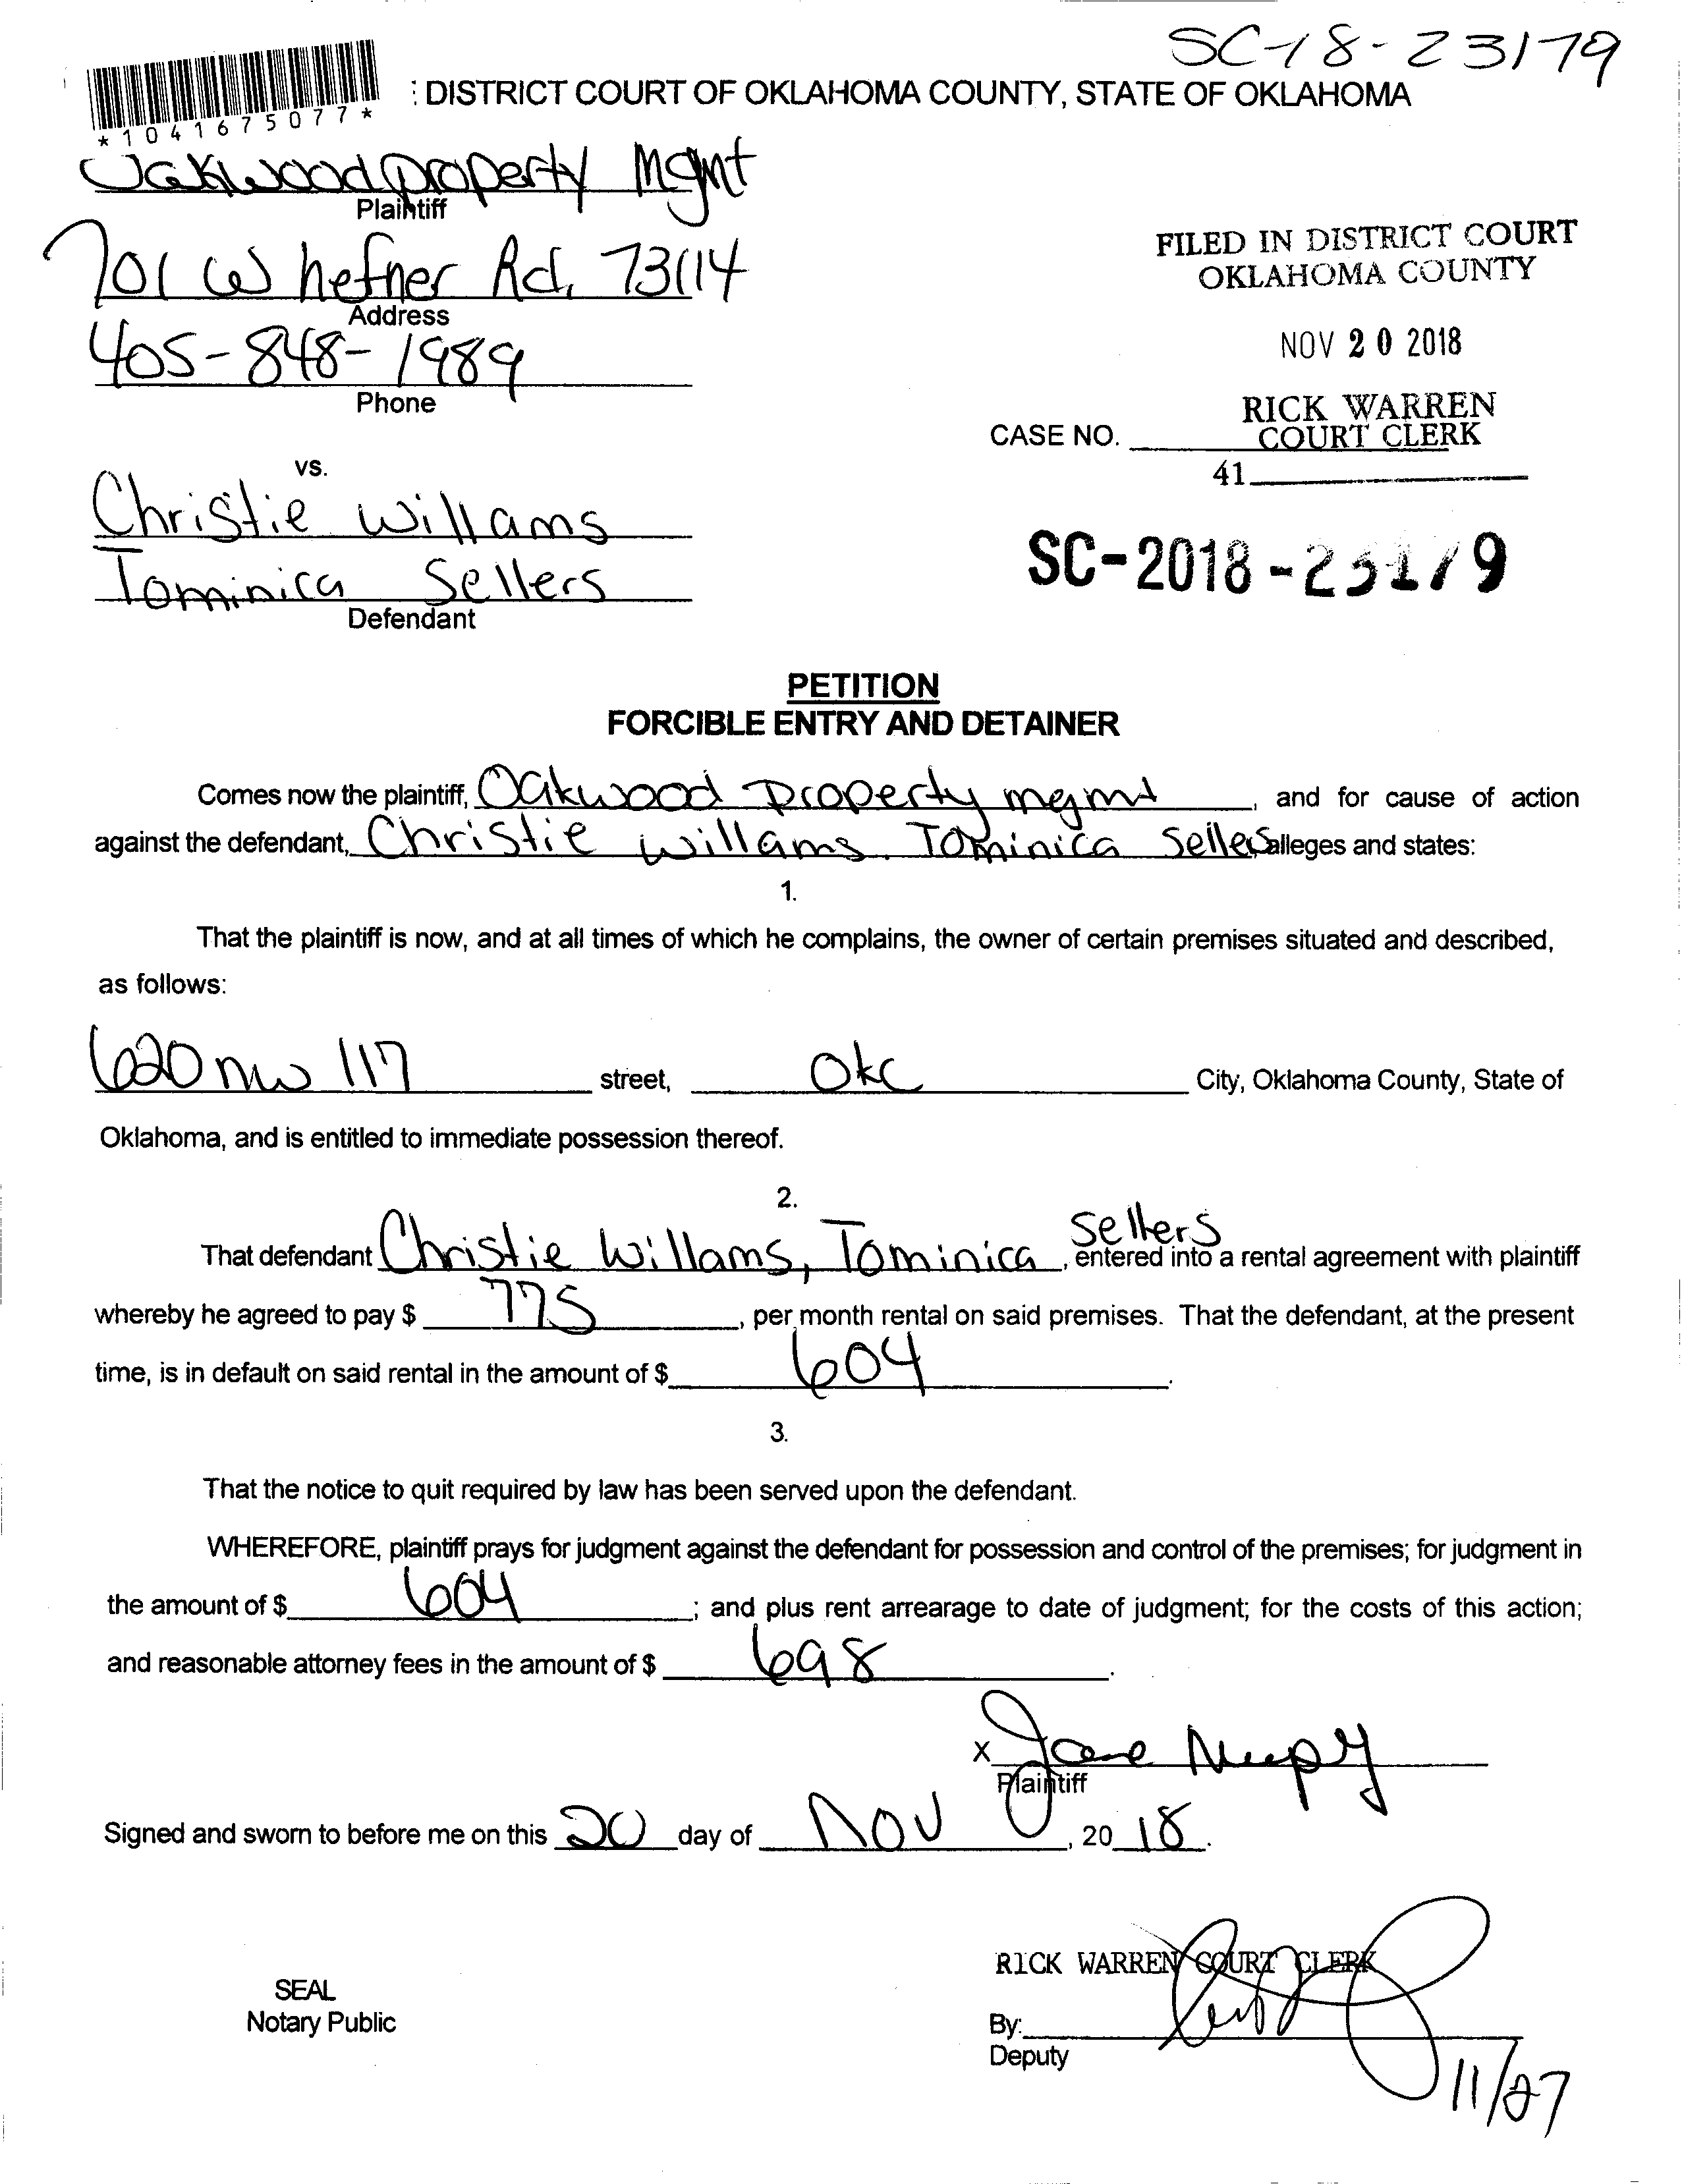 SC-18-23179
: DISTRICT COURT OF OKLAHOMA COUNTY, STATE OF OKLAHOMA
*1041675077*
Oakwood property Mgmt
Plaintiff
701 W hefner Rd, 73114
Address
405-848-1989
Phone
FILED IN DISTRICT COURT
OKLAHOMA COUNTY
NOV 20 2018
RICK WARREN
CASE NO. COURT CLERK
41
vs.
Christie Willams
Tominica Sellers
Defendant
SC-2018-23179
PETITION
FORCIBLE ENTRY AND DETAINER
Comes now the plaintiff, Oakwood property mgmt, and for cause of action
against the defendant, Christie Willams. Tominica Sellers alleges and states:
1.
That the plaintiff is now, and at all times of which he complains, the owner of certain premises situated and described,
as follows:
620 nw 117 street, Okc City, Oklahoma County, State of
Oklahoma, and is entitled to immediate possession thereof.
2.
Sellers
That defendant Christie Willams, Tominica, entered into a rental agreement with plaintiff
whereby he agreed to pay $ 775, per month rental on said premises. That the defendant, at the present
time, is in default on said rental in the amount of $ 604.
3.
That the notice to quit required by law has been served upon the defendant.
WHEREFORE, plaintiff prays for judgment against the defendant for possession and control of the premises; for judgment in
the amount of $ 604; and plus rent arrearage to date of judgment; for the costs of this action;
and reasonable attorney fees in the amount of $ 698.
x
Plaintiff
Signed and sworn to before me on this 20 day of NOV, 2018.
RICK WARREN COURT CLERK
SEAL
Notary Public
By:
Deputy
11/27